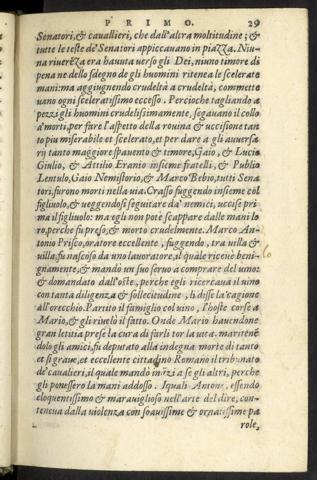 PRIMO. 29
Senatori, & cauallieri, che dall'altra moltitudine; &
tutte le teste de' Senatori appiccauano in piazza. Niu-
na riuerẽza era hauuta uerso gli Dei, niuno timore di
pena ne dello sdegno de gli huomini ritenea le scelerate
mani: ma aggiugnendo crudeltà a crudeltà, commette
uano ogni sceleratissimo eccesso. Percioche tagliando a
pezzi gli huomini crudelissimamente, segauano il collo
a' morti, per fare l'aspetto della rouina & uccisione tan
to piu miserabile et scelerato, et per dare a gli auuersa
rij tanto maggiore spauento & timore, Gaio, & Lucio
Giulio, & Attilio Eranio insieme fratelli, & Publio
Lentulo, Gaio Nemistorio, & Marco Bebio, tutti Sena
tori, furono morti nella uia. Crasso fuggendo insieme col
figliuolo, & ueggendosi seguitare da' nemici, uccise pri
ma il figliuolo: ma egli non potè scappare dalle mani lo
ro, perche fu preso, & morto crudelmente. Marco An-
tonio Prisco, oratore eccellente, fuggendo, tra uilla &
uilla, fu nascoso da uno lauoratore, il quale riceuè beni-
gnamente, & mandò un suo seruo a comprare del uino:
& domandato dall'oste, perche egli ricercaua il uino
con tanta diligenza & sollecitudine, li disse la cagione
all'orecchio. Partito il famiglio col uino, l'hoste corse a
Mario, & gli riuelò il fatto. Onde Mario hauendone
gran letitia prese la cura di farli tor la uita. ma ritenẽ
dolo gli amici, fu deputato alla indegna morte di tanto
et si graue, et eccellente cittadino Romano il tribunato
de' cauallieri, il quale mandò inãzi a se gli altri, perche
gli ponessero la mani addosso. I quali Anton°, essendo
eloquentissimo & marauiglioso nell'arte del dire, con-
tenea dalla uiolenza con soauissime & ornatissime pa
role,